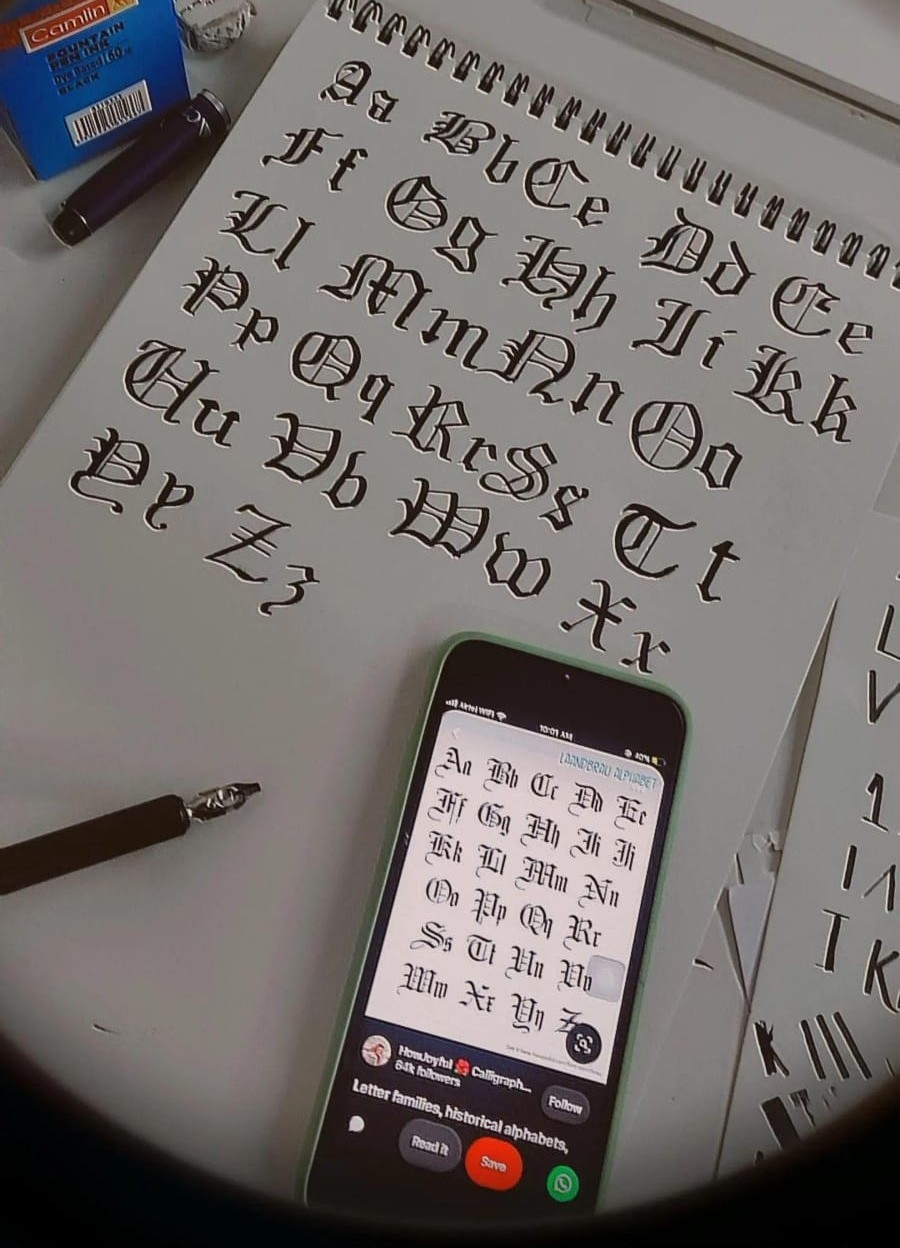 Camlin
FOUNTAIN
PEN INK
Dye Based | 60 ml
BLACK
Aa Bb Cc Dd Ee
Ff Gg Hh Ii Kk
Ll Mm Nn Oo
Pp Qq Rr Ss Tt
Uu Vv Ww Xx
Yy Zz
Airtel WiFi
10:01 AM
40%
Aa Bb Cc Dd Ee
Ff Gg Hh Ii Jj
Kk Ll Mm Nn
Oo Pp Qq Rr
Ss Tt Uu Vv
Ww Xx Yy Z
HowJoyful Calligraph...
64k followers
Follow
Letter families, historical alphabets,
Read it
Save
L
V
1
I
K